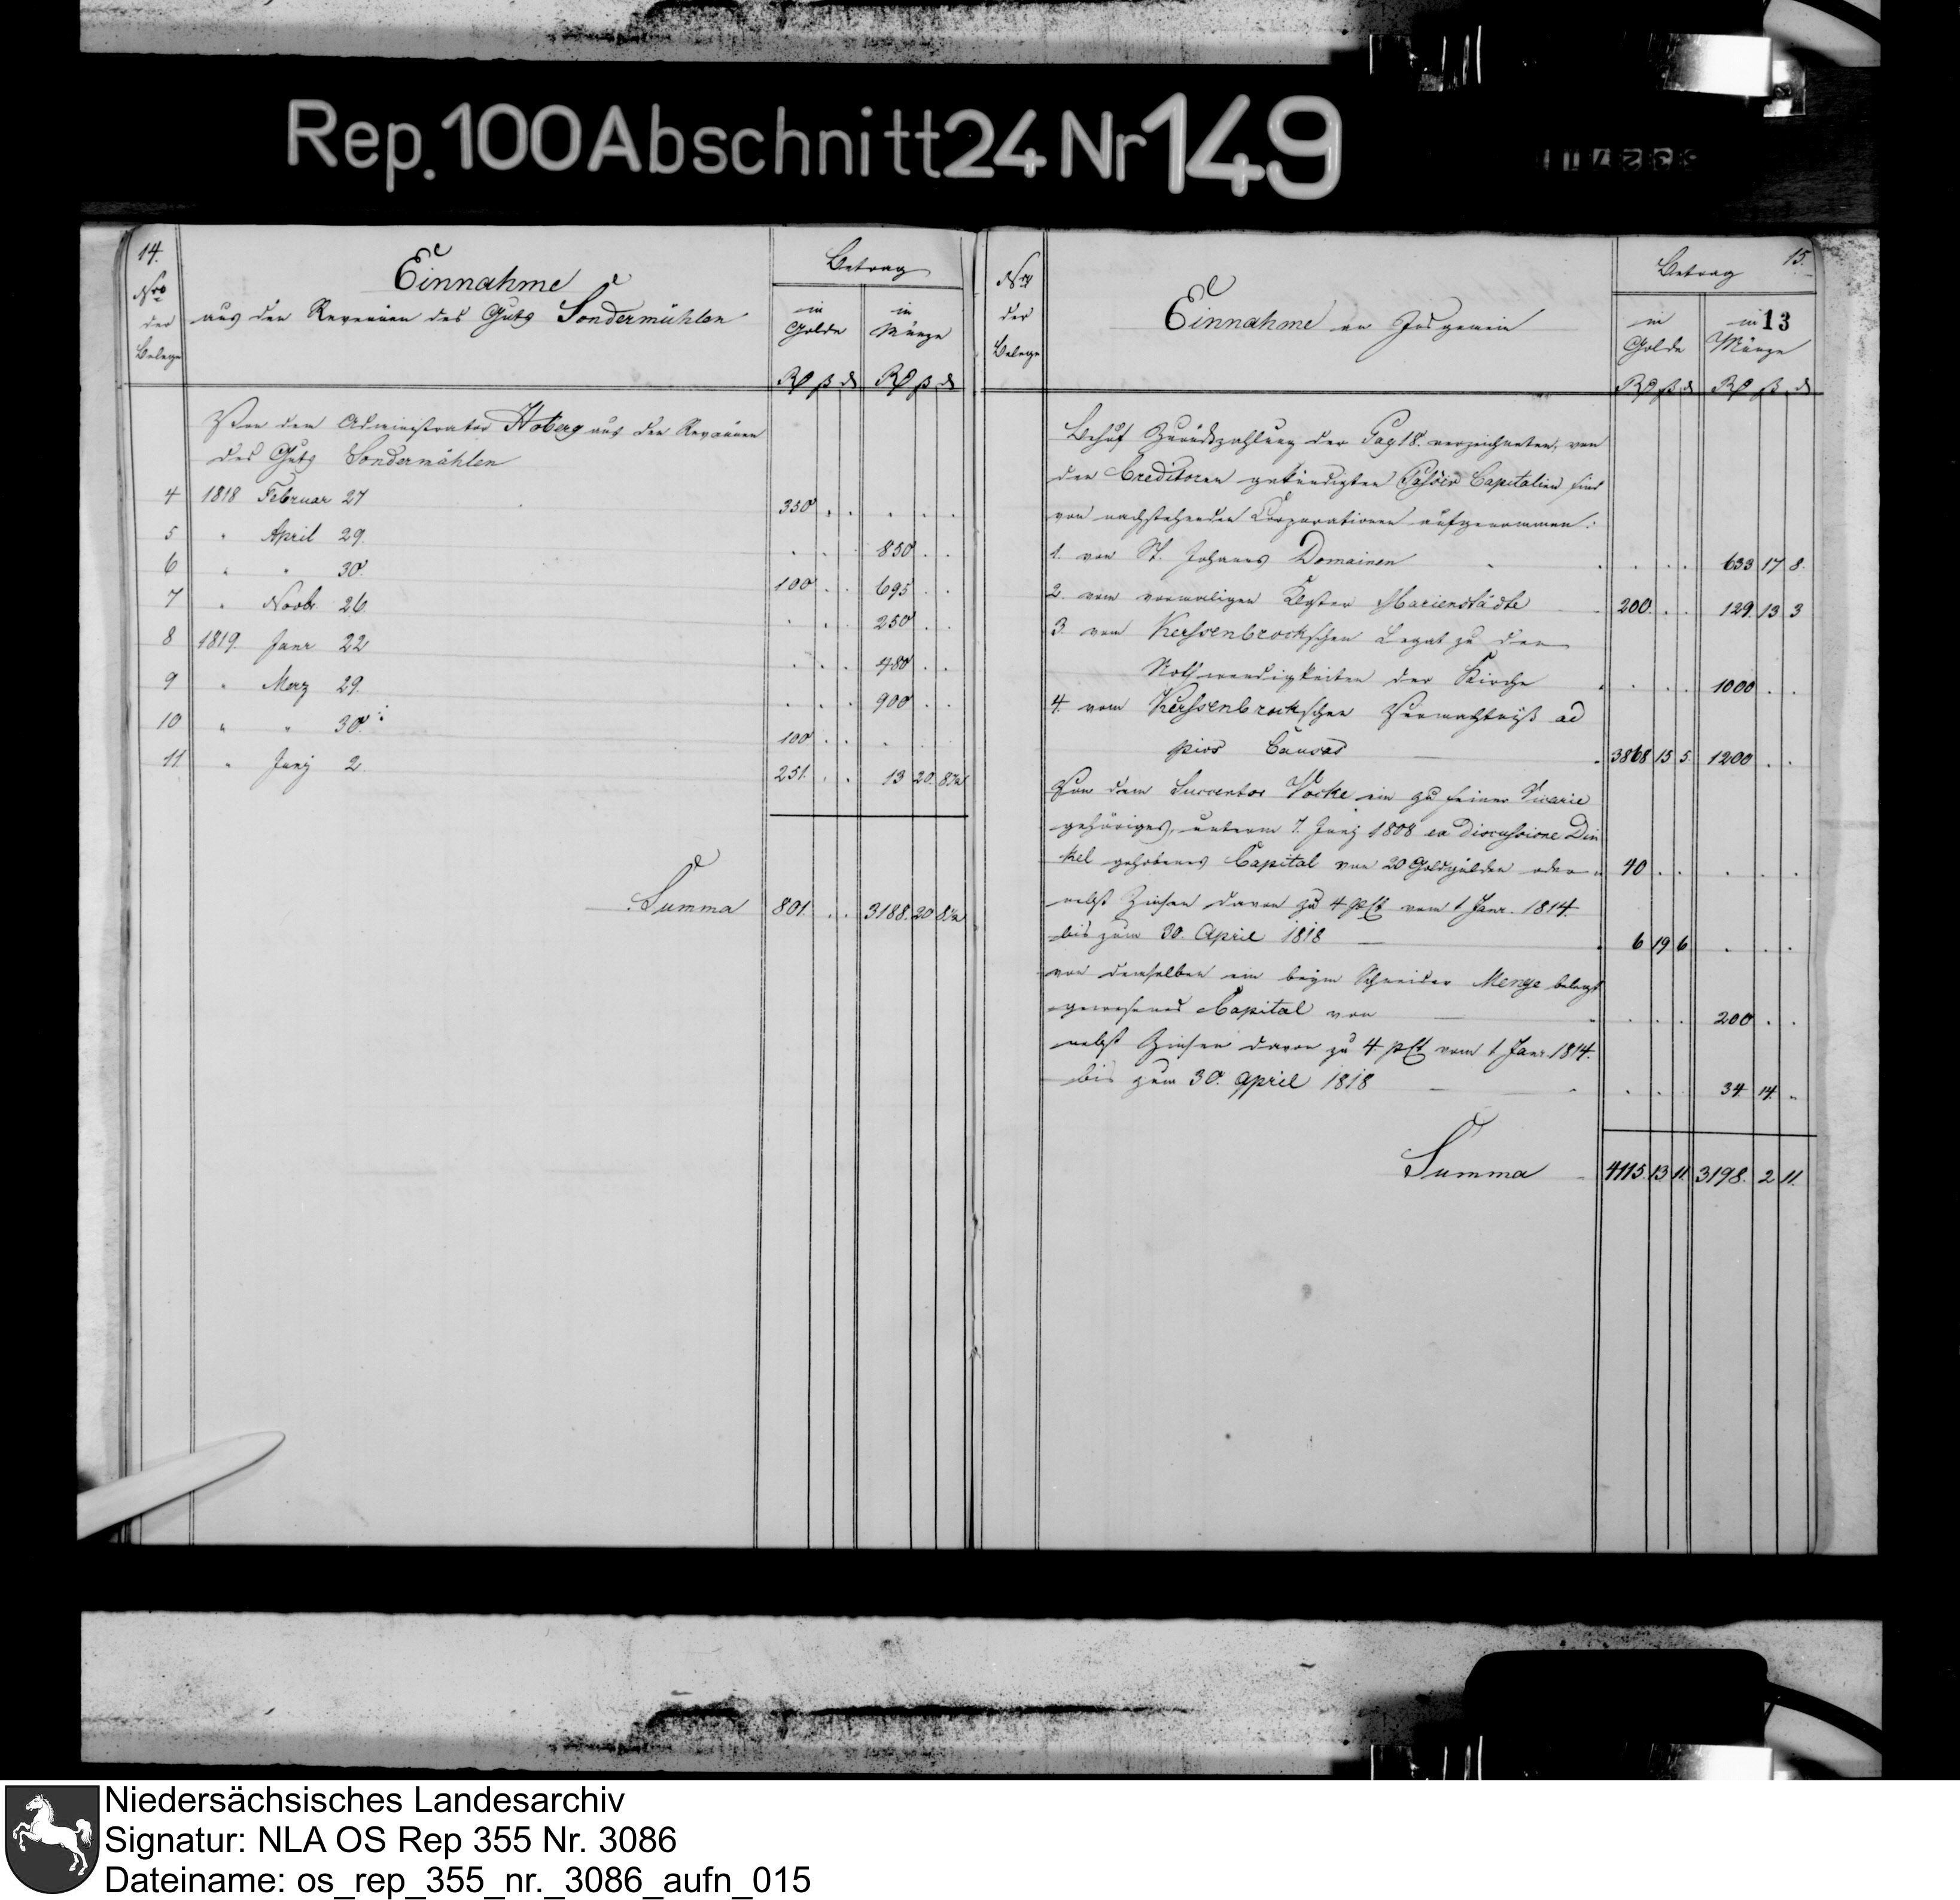 Rep. 100 Abschnitt 24 Nr 149
14.
Nro der Belege
Einnahme
aus den Revenüen des Guts Sondermühlen
Betrag
in Golde
in Münze
Rt ß d Rt ß d
Von dem Administrator Hoberg aus den Revenüen
des Guts Sondermühlen
4 1818 Februar 27 350 . . . . .
5 " April 29. . . . 850 . .
6 " " 30. 100 . . 695 . .
7 " Novbr 26. . . . 250 . .
8 1819. Janr 22 . . . 480 . .
9 " Merz 29. . . . 900 . .
10 " " 30. 100 . . . . .
11. " Junij 2. 251. . . 13 20. 8½
Summa 801. . . 3188. 20 8½
15.
13
Nro der Belege
Einnahme an Insgemein
Betrag
in Golde
in Münze
Rt ß d Rt ß d
Behuf Zurückzahlung der Pag 18. verzeichneten, von
den Creditoren gekündigten Passiv Capitalien sind
von nachstehenden Corporationen aufgenommen:
1. von St. Johanns Domainen . . . 633 17 8.
2. vom vormaligen Kloster Marienstädte 200. . . 129. 13 3
3. von Kerssenbrockschen Legat zu den
Nothwendigkeiten der Kirche . . . 1000 . .
4. vom Kerssenbrockschen Vermächtniß ad
pios Causas 3868 15 5 1200 . .
Von dem Succentor Vocke ein zu seiner Vicarie
gehöriges, unterm 7. Junij 1808 ex Discussione Din
kel gehobenes Capital von 20 Goldgülden oder 40 . . . . .
nebst Zinsen davon zu 4 pCt vom 1 Janr. 1814.
bis zum 30. April 1818 6 19 6 . . .
von demselben ein beym Schneider Menge belegt
gewesenes Capital von . . . 200 . .
nebst Zinsen davon zu 4. pCt vom 1 Janr. 1814.
bis zum 30. April 1818 . . . 34 14 "
Summa 4115. 13 11. 3198. 2 11.
Niedersächsisches Landesarchiv
Signatur: NLA OS Rep 355 Nr. 3086
Dateiname: os_rep_355_nr._3086_aufn_015